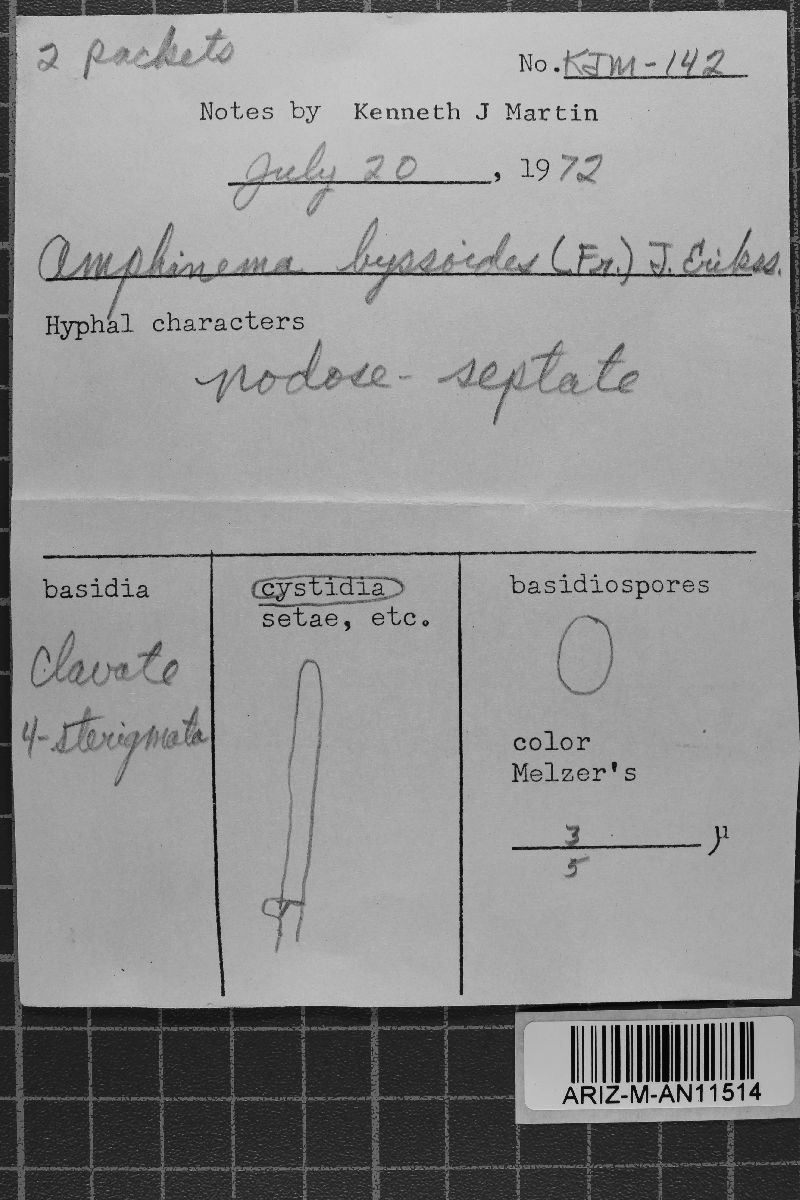 2 packets
No. KJM-142
Notes by Kenneth J Martin
July 20, 1972
Amphinema byssoides (Fr.) J. Erikss.
Hyphal characters
nodose-septate
basidia
clavate
4-sterigmata
cystidia
setae, etc.
basidiospores
color
Melzer's
3
5 µ
ARIZ-M-AN11514